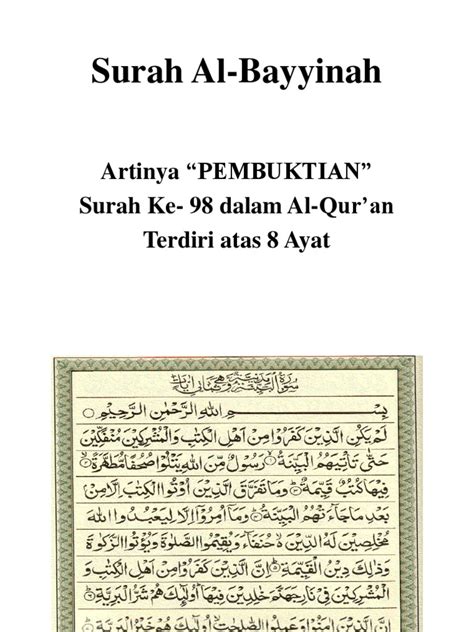 Surah Al-Bayyinah
Artinya “PEMBUKTIAN”
Surah Ke- 98 dalam Al-Qur’an
Terdiri atas 8 Ayat
بِسْمِ اللهِ الرَّحْمٰنِ الرَّحِيْمِ
لَمْ يَكُنِ الَّذِيْنَ كَفَرُوْا مِنْ اَهْلِ الْكِتٰبِ وَالْمُشْرِكِيْنَ مُنْفَكِّيْنَ
حَتّٰى تَأْتِيَهُمُ الْبَيِّنَةُ رَسُوْلٌ مِّنَ اللهِ يَتْلُوْا صُحُفًا مُّطَهَّرَةً
فِيْهَا كُتُبٌ قَيِّمَةٌ وَمَا تَفَرَّقَ الَّذِيْنَ اُوْتُوا الْكِتٰبَ اِلَّا مِنْ
بَعْدِ مَا جَاءَتْهُمُ الْبَيِّنَةُ وَمَا اُمِرُوْا اِلَّا لِيَعْبُدُوا اللهَ
مُخْلِصِيْنَ لَهُ الدِّيْنَ حُنَفَاءَ وَيُقِيْمُوا الصَّلٰوةَ وَيُؤْتُوا الزَّكٰوةَ
وَذٰلِكَ دِيْنُ الْقَيِّمَةِ اِنَّ الَّذِيْنَ كَفَرُوْا مِنْ اَهْلِ الْكِتٰبِ وَ
الْمُشْرِكِيْنَ فِيْ نَارِ جَهَنَّمَ خٰلِدِيْنَ فِيْهَا اُولٰئِكَ هُمْ شَرُّ الْبَرِيَّةِ
اِنَّ الَّذِيْنَ اٰمَنُوْا وَعَمِلُوا الصّٰلِحٰتِ اُولٰئِكَ هُمْ خَيْرُ الْبَرِيَّةِ